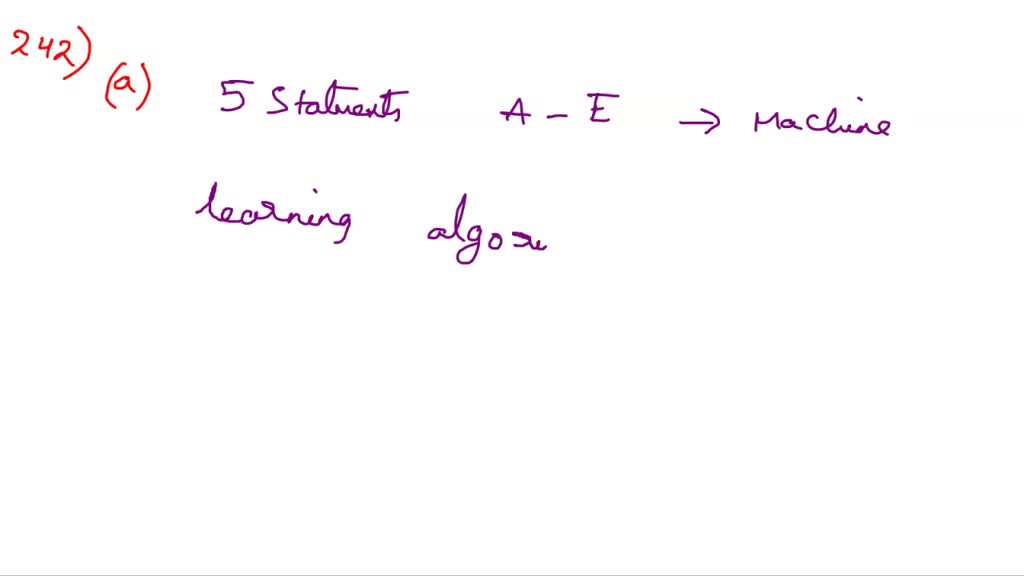 242) (a) 5 Statments A - E → Machine
learning algor